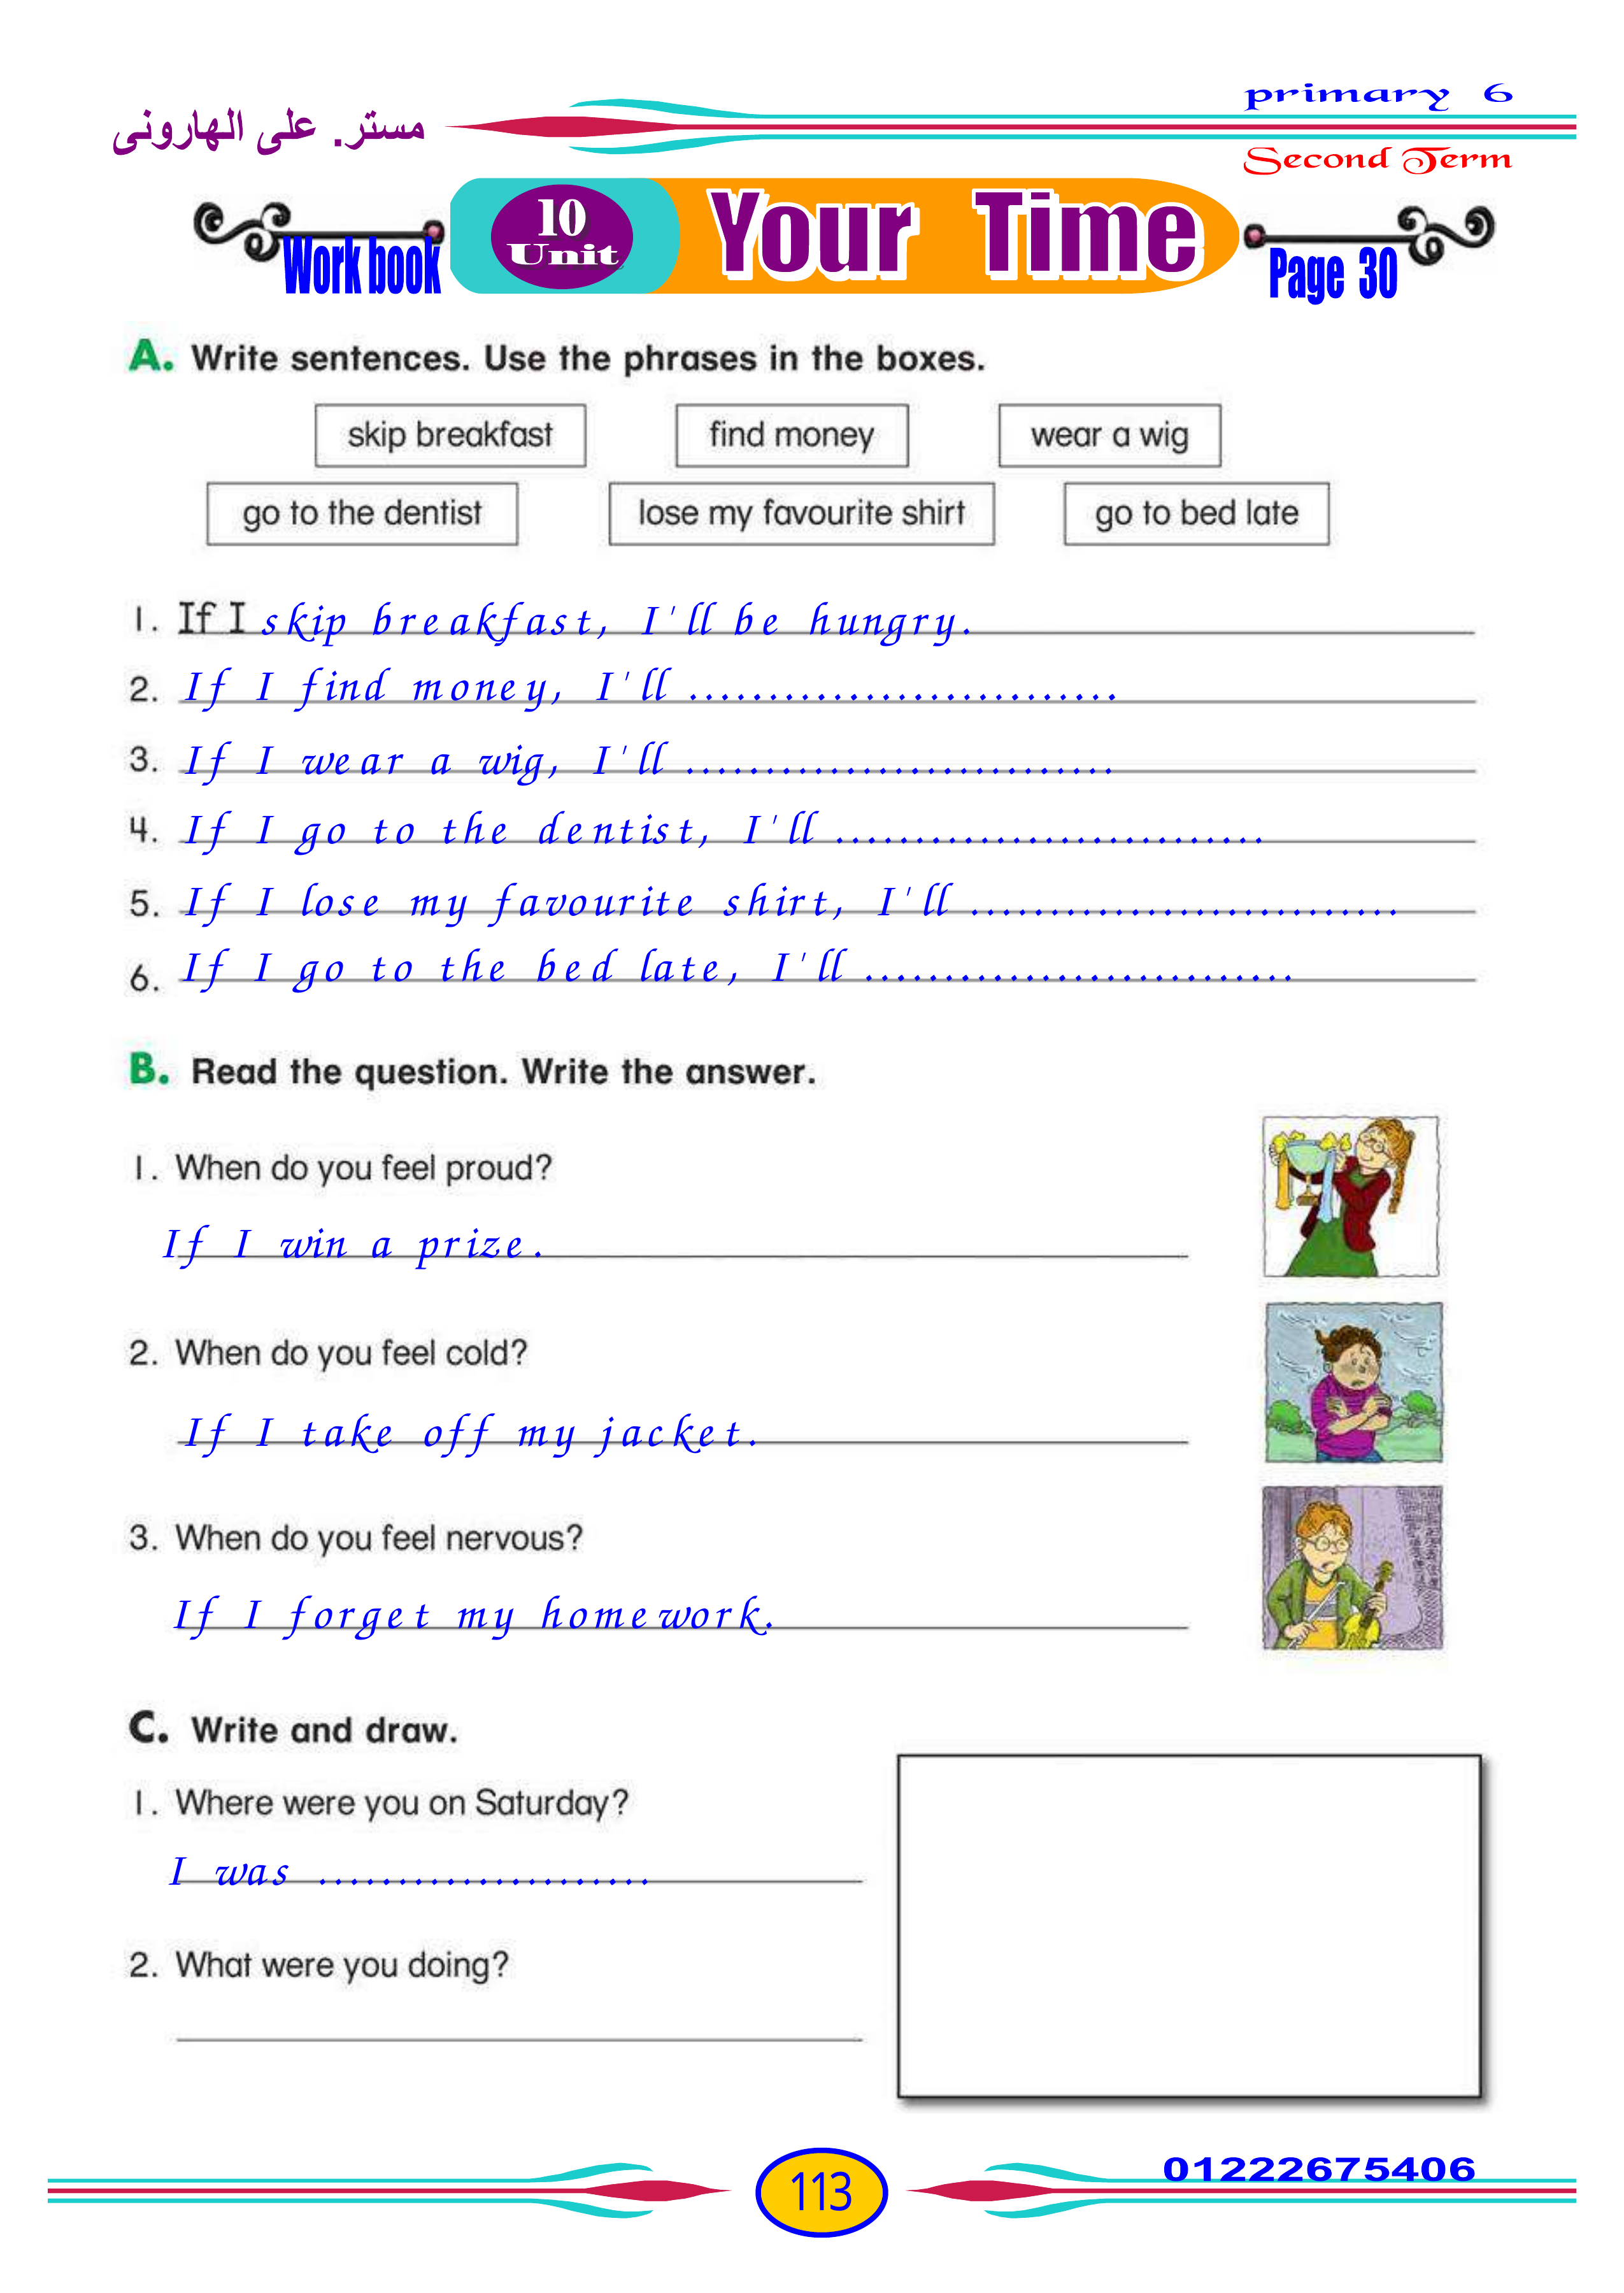 مستر. على الهارونى
primary 6
Second Term
10
Unit
Your Time
Work book
Page 30
A. Write sentences. Use the phrases in the boxes.
skip breakfast find money wear a wig
go to the dentist lose my favourite shirt go to bed late
1. If I skip breakfast, I'll be hungry.
2. If I find money, I'll ...........................
3. If I wear a wig, I'll ...........................
4. If I go to the dentist, I'll ...........................
5. If I lose my favourite shirt, I'll ...........................
6. If I go to the bed late, I'll ...........................
B. Read the question. Write the answer.
1. When do you feel proud?
If I win a prize.
2. When do you feel cold?
If I take off my jacket.
3. When do you feel nervous?
If I forget my homework.
C. Write and draw.
1. Where were you on Saturday?
I was .....................
2. What were you doing?
113
01222675406